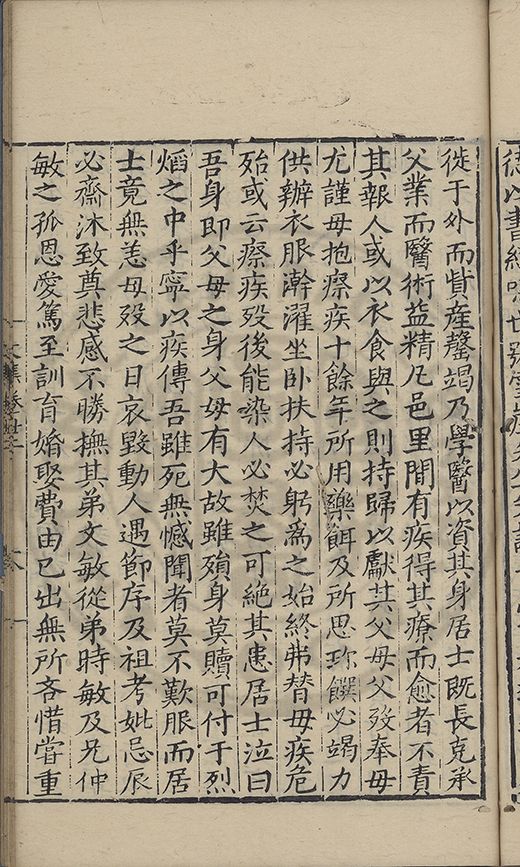 徙于外而貲産罄竭乃學醫以資其身居士既長克承
父業而醫術益精凡邑里間有疾得其療而愈者不責
其報人或以衣食與之則持歸以獻其父母父歿奉母
尤謹母抱瘵疾十餘年所用藥餌及所思珎饌必竭力
供辦衣服澣濯坐卧扶持必躬爲之始終弗替毋疾危
殆或云瘵疾歿後能染人必焚之可絶其患居士泣曰
吾身即父母之身父母有大故雖殞身莫贖可付于烈
熖之中乎寧以疾傳吾雖死無憾聞者莫不歎服而居
士竟無恙母殁之日哀毀動人遇節序及祖考妣忌辰
必齋沐致奠悲感不勝撫其弟文敏從弟時敏及兄仲
敏之孤恩愛篤至訓育婚娶費由已出無所吝惜嘗重